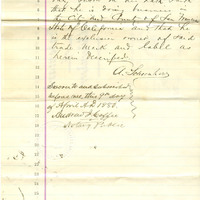 that he is doing business in
the City and County of San Francisco
State of California and that he
is the exclusive owner of said
trade mark and label as
herein described.
A.
Sworn to and subscribed
before me, this 9th day
of April A.D. 1880.
Notary Public